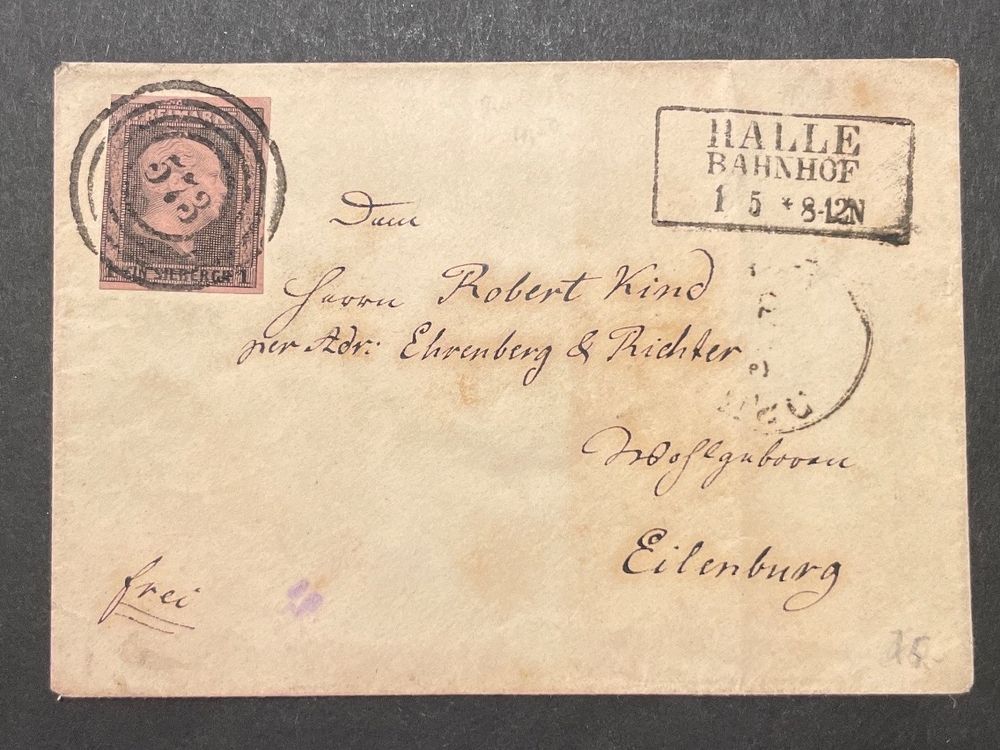 FREIMARKE
573
1 EIN SILBERGR. 1
HALLE
BAHNHOF
1 5 * 8-12N
Dem
Herrn Robert Kind
per Adr: Ehrenberg & Richter
Wohlgeboren
Eilenburg
frei